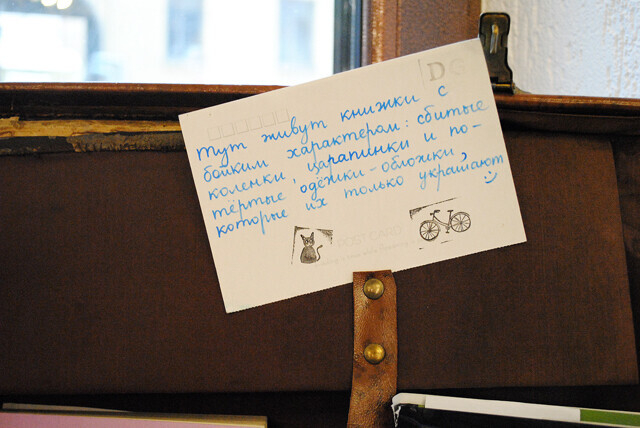 DG
Тут живут книжки с
бойким характером: сбитые
коленки, царапинки и по-
тёртые одёжки-обложки,
которые их только украшают
POST CARD